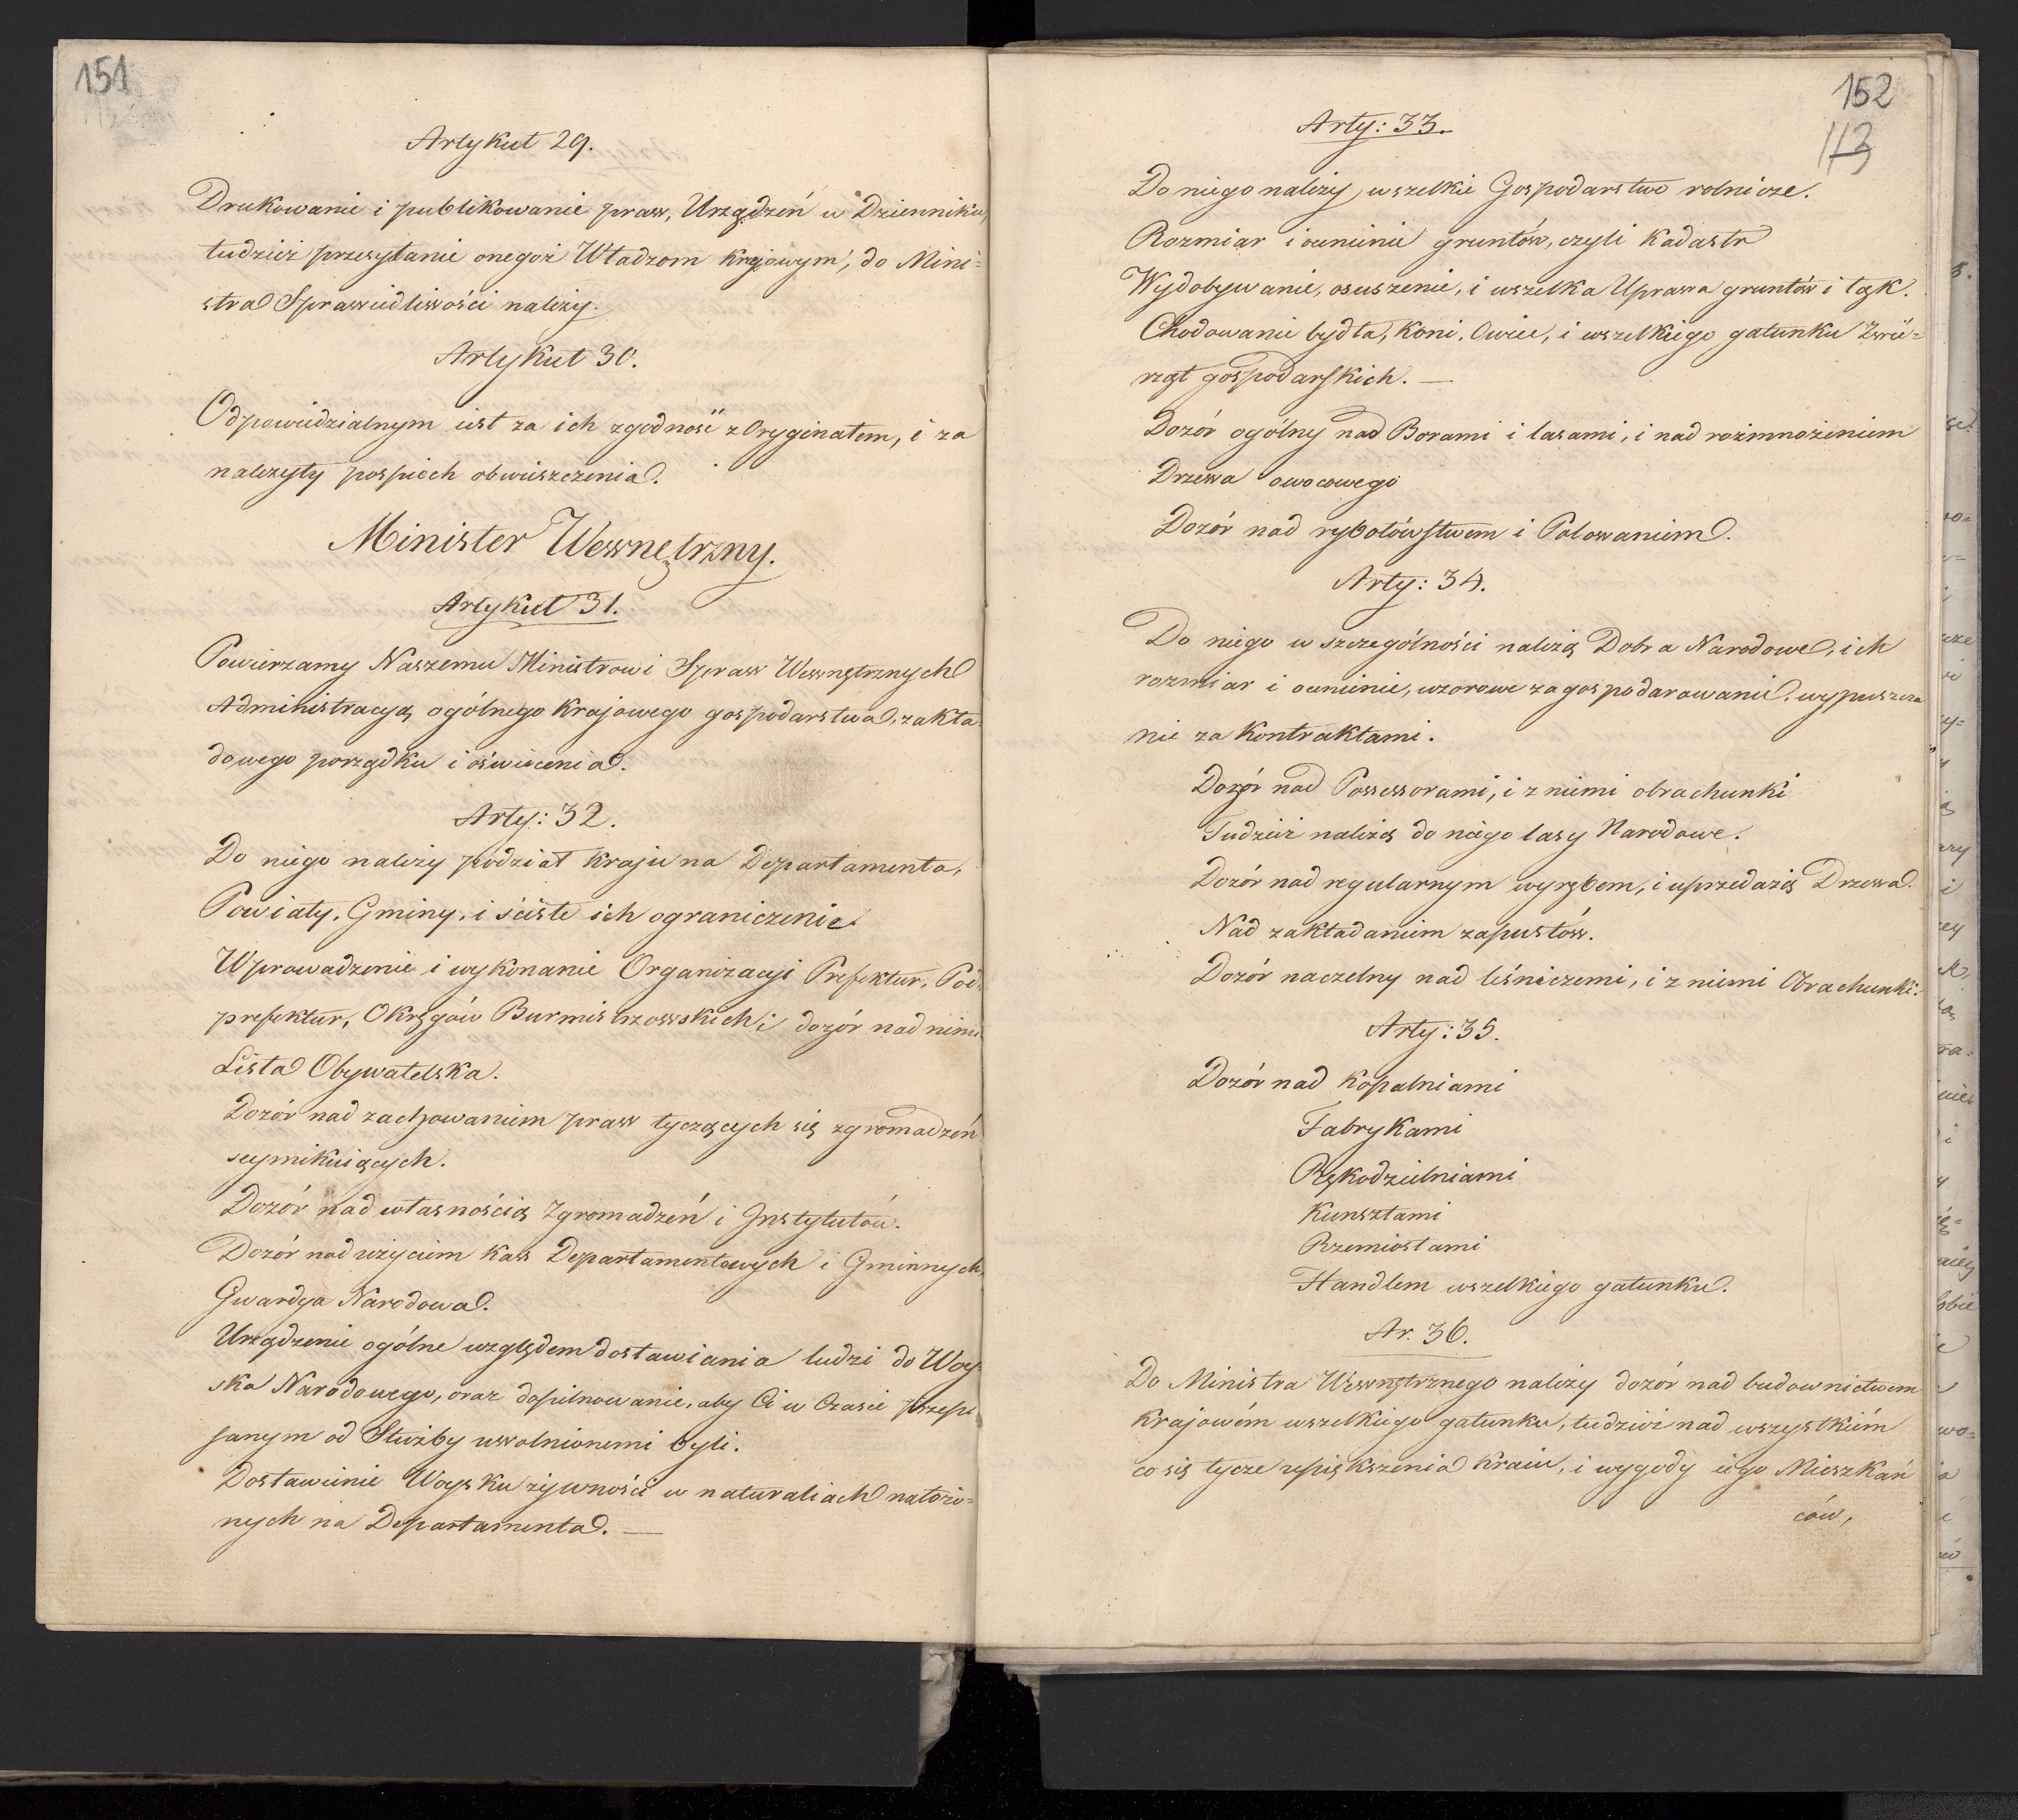 151
Artykuł 29.
Drukowanie i publikowanie praw, Urządzeń w Dzienniku,
tudzież przesyłanie onegoż Władzom krajowym, do Mini=
stra Sprawiedliwości należy.
Artykuł 30.
Odpowiedzialnym iest za ich zgodność z Oryginałem, i za
należyty pospiech obwieszczenia.
Minister Wewnętrzny.
Artykuł 31.
Powierzamy Naszemu Ministrowi Spraw Wewnętrznych
Administracyą ogólnego krajowego gospodarstwa, zakła
dowego porządku i oświecenia.
Arty: 32.
Do niego należy podział kraju na Departamenta,
Powiaty, Gminy, i ścisłe ich ograniczenie.
Wprowadzenie i wykonanie Organizacyi Prefektur, Pod
prefektur, Okręgów Burmistrzowskich i dozór nad nimi
Lista Obywatelska.
Dozór nad zachowaniem praw tyczących się zgromadzeń
seymikuiących.
Dozór nad własnością Zgromadzeń i Instytutów.
Dozór nad użyciem kass Departamentowych i Gminnych.
Gwardya Narodowa.
Urządzenie ogólne względem dostawiania ludzi do Woy
ska Narodowego, oraz dopilnowanie, aby Ci w Czasie przepi
sanym od Służby uwolnionemi byli.
Dostawienie Woysku żywności w naturaliach nałożo=
nych na Departamenta. —
152
113
Arty: 33.
Do niego należy wszelkie Gospodarstwo rolnicze.
Rozmiar i ocenienie gruntów, czyli Kadastr
Wydobywanie, osuszenie, i wszelka Uprawa gruntów i łąk.
Chodowanie bydła, koni, Owiec, i wszelkiego gatunku Zwie=
rząt gospodarskich. —
Dozór ogólny nad Borami i lasami, i nad rozmnożeniem
Drzewa owocowego
Dozór nad rybołówstwem i Polowaniem.
Arty: 34.
Do niego w szczególności należą Dobra Narodowe, ich
rozmiar i ocenienie, wzorowe zagospodarowanie, wypuszcza
nie za kontraktami.
Dozór nad Possessorami, i z niemi obrachunki
Tudzież należą do niego lasy Narodowe.
Dozór nad regularnym wyrębem, i uprzedażą Drzewa.
Nad zakładaniem zapustów.
Dozór naczelny nad leśniczemi, i z niemi Obrachunki.
Arty: 35.
Dozór nad kopalniami
Fabrykami
Rękodzielniami
Kunsztami
Rzemiosłami
Handlem wszelkiego gatunku.
Ar. 36.
Do Ministra Wewnętrznego należy dozór nad budownictwem
krajowém wszelkiego gatunku, tudzież nad wszystkiém
co się tycze upiększenia kraiu, i wygody iego Mieszkań
ców,